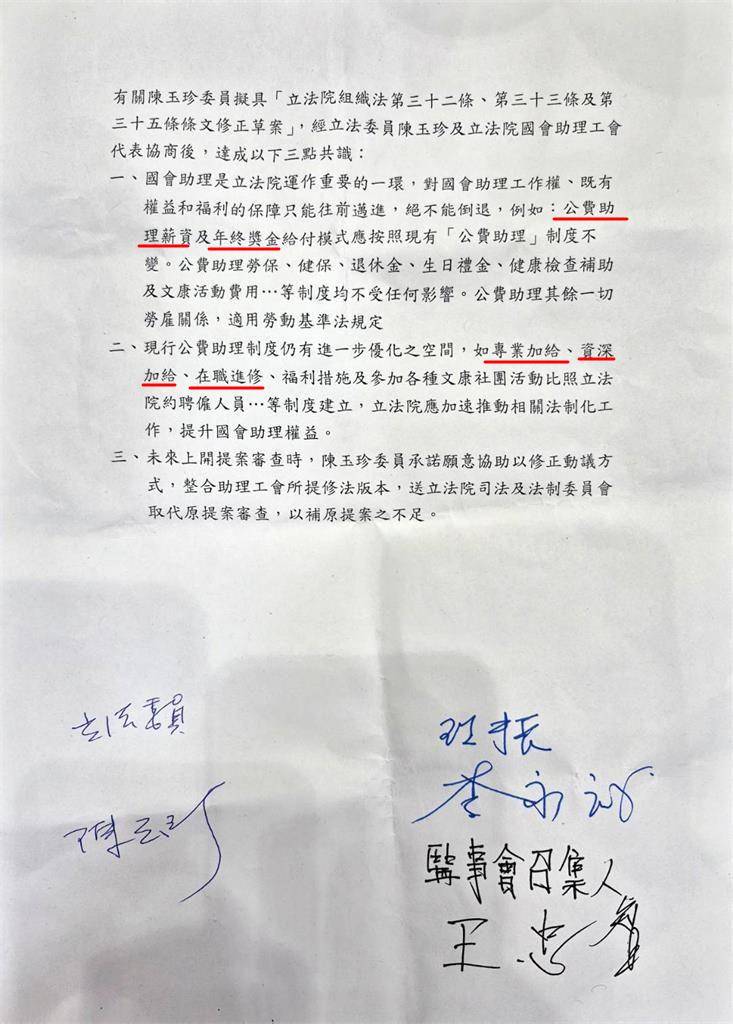 有關陳玉珍委員擬具「立法院組織法第三十二條、第三十三條及第
三十五條條文修正草案」，經立法委員陳玉珍及立法院國會助理工會
代表協商後，達成以下三點共識：
一、國會助理是立法院運作重要的一環，對國會助理工作權、既有
權益和福利的保障只能往前邁進，絕不能倒退，例如：公費助
理薪資及年終獎金給付模式應按照現有「公費助理」制度不
變。公費助理勞保、健保、退休金、生日禮金、健康檢查補助
及文康活動費用…等制度均不受任何影響。公費助理其餘一切
勞雇關係，適用勞動基準法規定
二、現行公費助理制度仍有進一步優化之空間，如專業加給、資深
加給、在職進修、福利措施及參加各種文康社團活動比照立法
院約聘僱人員…等制度建立，立法院應加速推動相關法制化工
作，提升國會助理權益。
三、未來上開提案審查時，陳玉珍委員承諾願意協助以修正動議方
式，整合助理工會所提修法版本，送立法院司法及法制委員會
取代原提案審查，以補原提案之不足。
立法委員
陳玉珍
理事長
監事會召集人
王忠